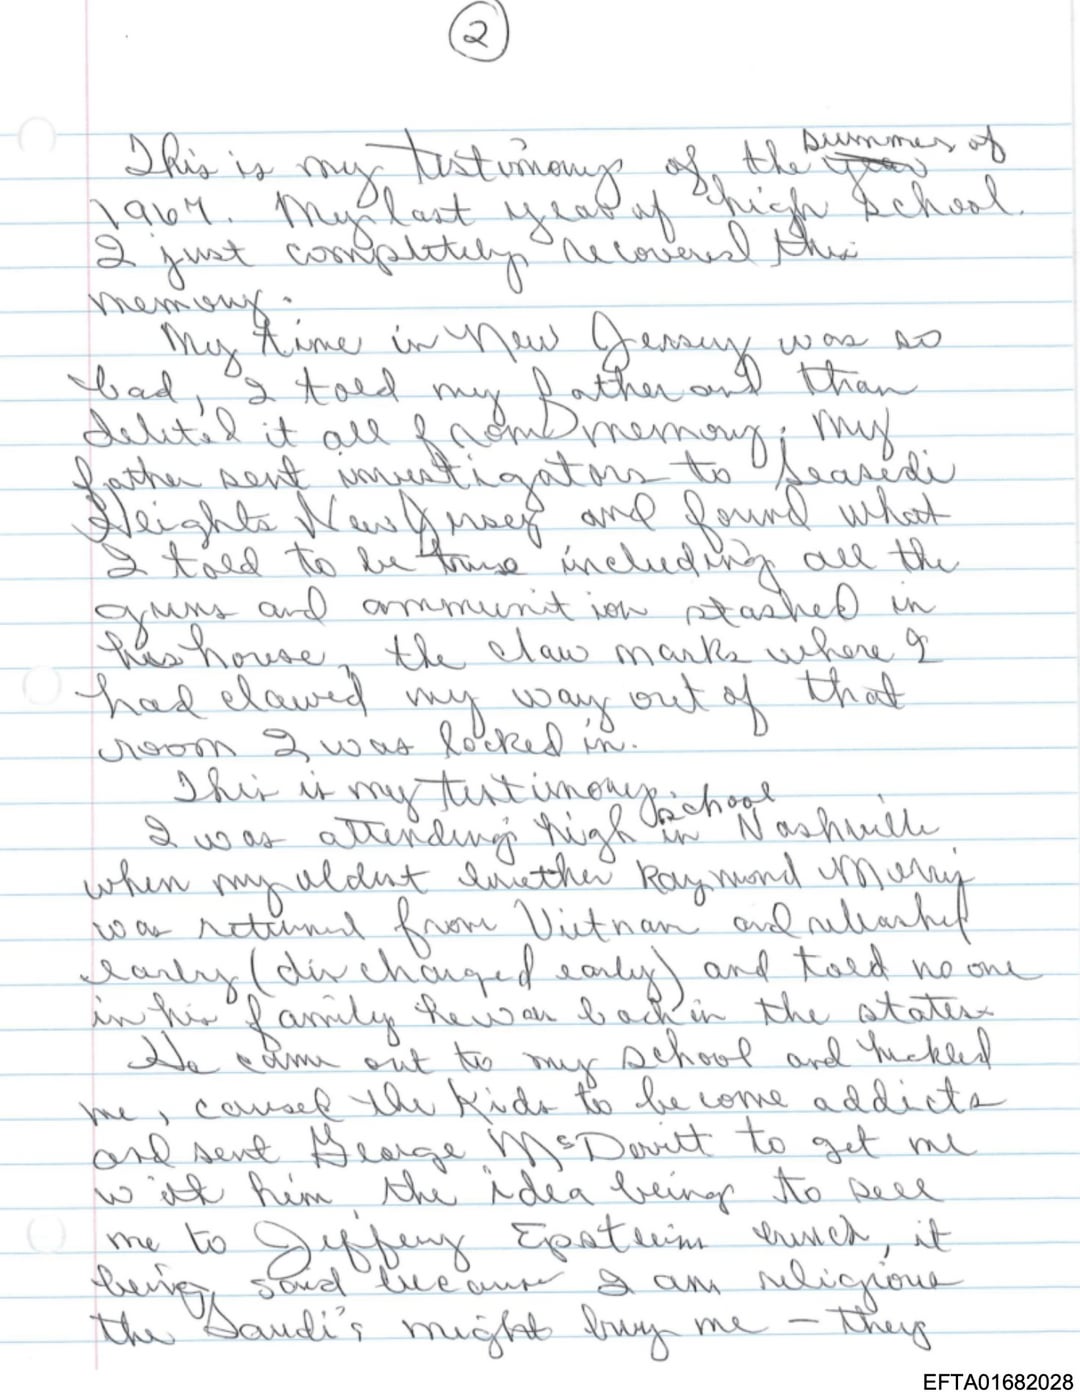 2
This is my testimony of the year summer of
1967. My last year of high school.
I just completely recovered this
memory.
My time in New Jersey was so
bad, I told my father and than
deleted it all from memory. My
father sent investigators to Seasedi
Heights New Jersey and found what
I told to be true including all the
guns and ammunition stashed in
his house, the claw marks where I
had clawed my way out of that
room I was locked in.
This is my testimony
I was attending high school in Nashville
when my oldest brother Raymond
was returned from Vietnam and
early (discharged early) and told no one
in his family he was back in the states
He came out to my school and
me, caused the kids to become addicts
and sent George McDevitt to get me
with him the idea being to sell
me to Jeffery Epstein bunch, it
being said because I am religious
the Saudi's might buy me – they
EFTA01682028